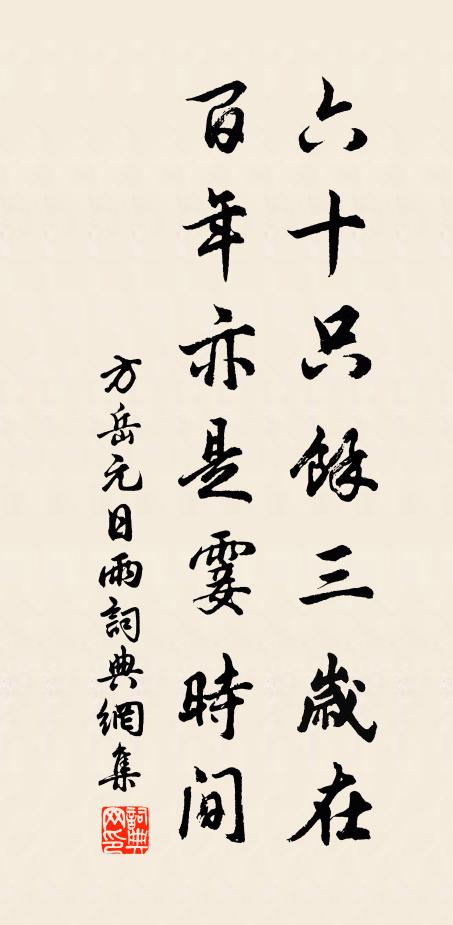 六十只餘三歲在
百年亦是霎時間
方岳元日雨詞典網集
詞典网印